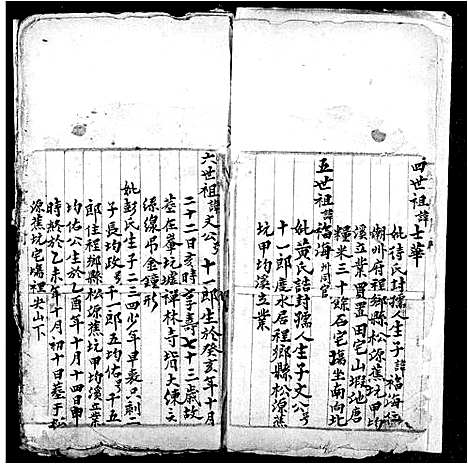 四世祖諱士華
妣待氏封孺人生子諱福海
潮州府程鄉縣松源蕉坑甲均
溪立業置買田宅山塅地唐
糧米三十餘石宅場坐南向北
五世祖諱福海
妣黃氏誥封孺人生子文公号
十一郎度水居程鄉縣松源蕉
坑甲均溪立業
六世祖諱文公号十一郎生於癸亥年十月
二十二日亥時享壽七十三歲故
墓在墟祥林寺背大陳
係線吊金鐘形
妣彭氏生子二三四少年早喪只剩二
子長均政十一郎五均佑号千五
郎住程鄉縣松源蕉坑甲均溪立業
均佑公生於乙酉年十月十四日申
時終於乙未年十月初十日墓于松
源蕉坑宅場裡尖山下